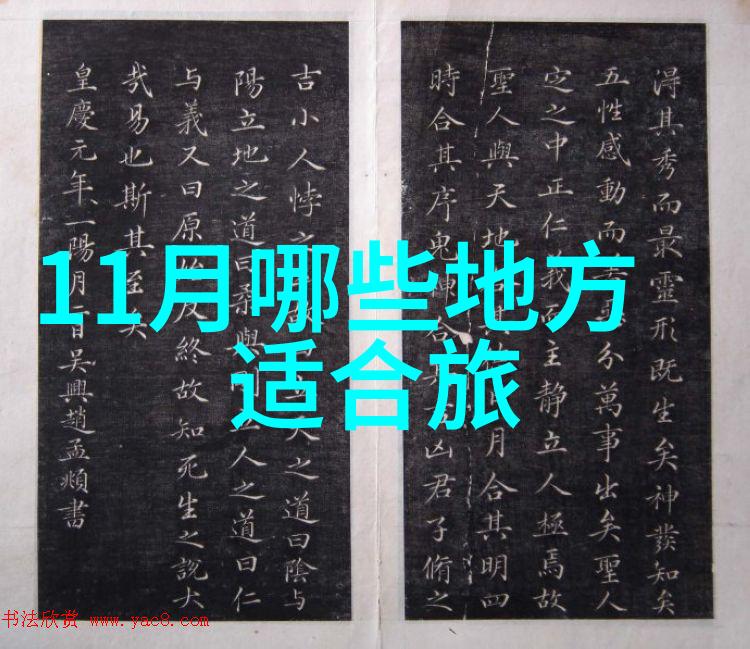 11月哪些地方
适合旅
淂其秀而最靈形既生矣神發知矣
五性感動而分萬事出矣聖人
定之中正仁義而主靜立人極焉故
聖人與天地合其月合其明四
時合其序鬼神合其凶君子脩之
吉小人悖之天之道曰陰与
陽立地之道曰柔與立人之道曰仁
与義又曰原始反終故知死生之說大
哉易也斯其至矣
皇慶元年一陽月二日吳興趙孟頫書
书法欣赏 www.yac8.com